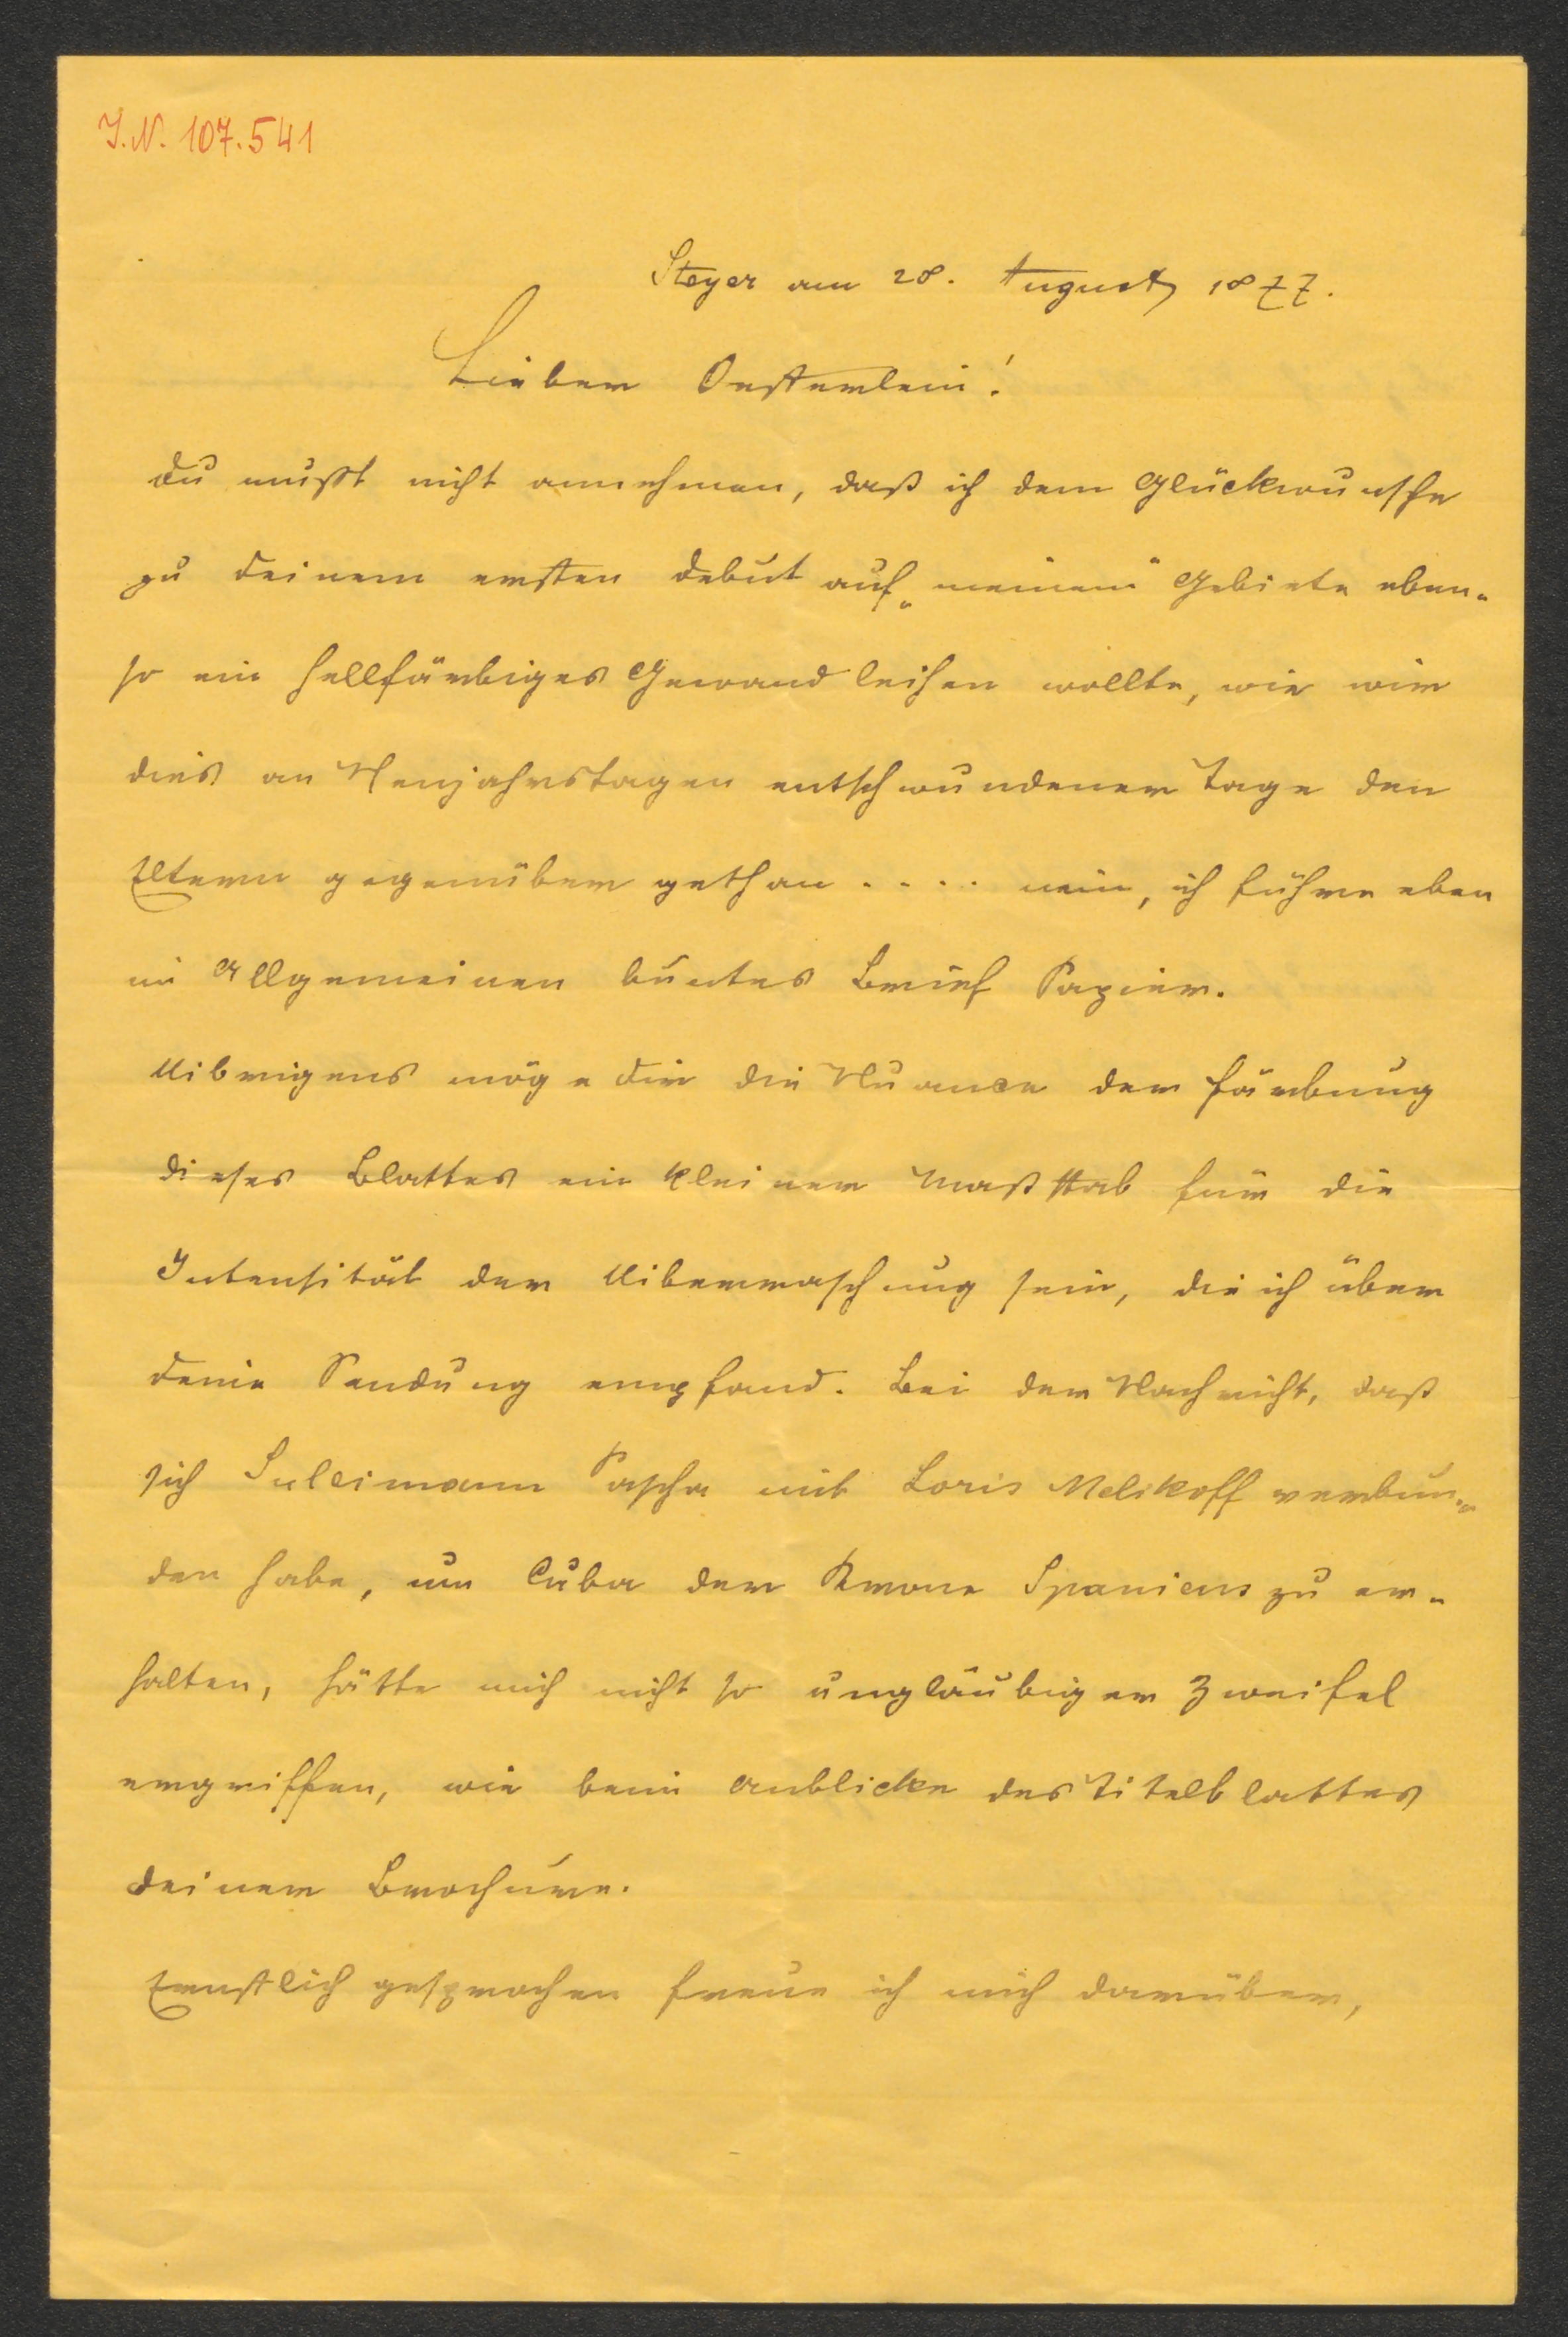 J.N. 107.541
Steyer am 28. August 1877.
Lieber Oesterlein!
Du mußt nicht annehmen, daß ich dem Glückwunsche
zu Deinem ersten Debut auf „meinem“ Gebiete eben-
so ein hellfärbiges Gewand leihen wollte, wie wir
dies an Neujahrstagen entschwundener Tage den
Eltern gegenüber gethan .... nein, ich führe eben
im Allgemeinen buntes Brief Papier.
Uibrigens möge Dir die Nuance der Färbung
dieses Blattes ein kleiner Maßstab für die
Intensität der Uiberraschung sein, die ich über
Deine Sendung empfand. Bei der Nachricht, daß
sich Suleimann Pascha mit Loris Melikoff verbun-
den habe, um Cuba der Krone Spaniens zu er-
halten, hätte mich nicht so ungläubiger Zweifel
ergriffen, wie beim Anblicke des Titelblattes
Deiner Brochure.
Ernstlich gesprochen freue ich mich darüber,